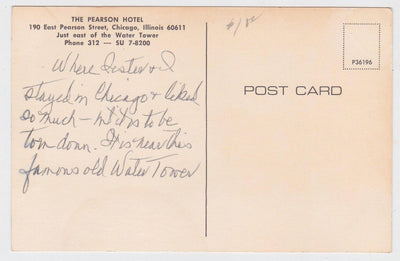 THE PEARSON HOTEL
190 East Pearson Street, Chicago, Illinois 60611
Just east of the Water Tower
Phone 312 — SU 7-8200
P36196
POST CARD
Where Lester & I
stayed in Chicago & liked
so much — it is to be
torn down. It is near this
famous old Water Tower